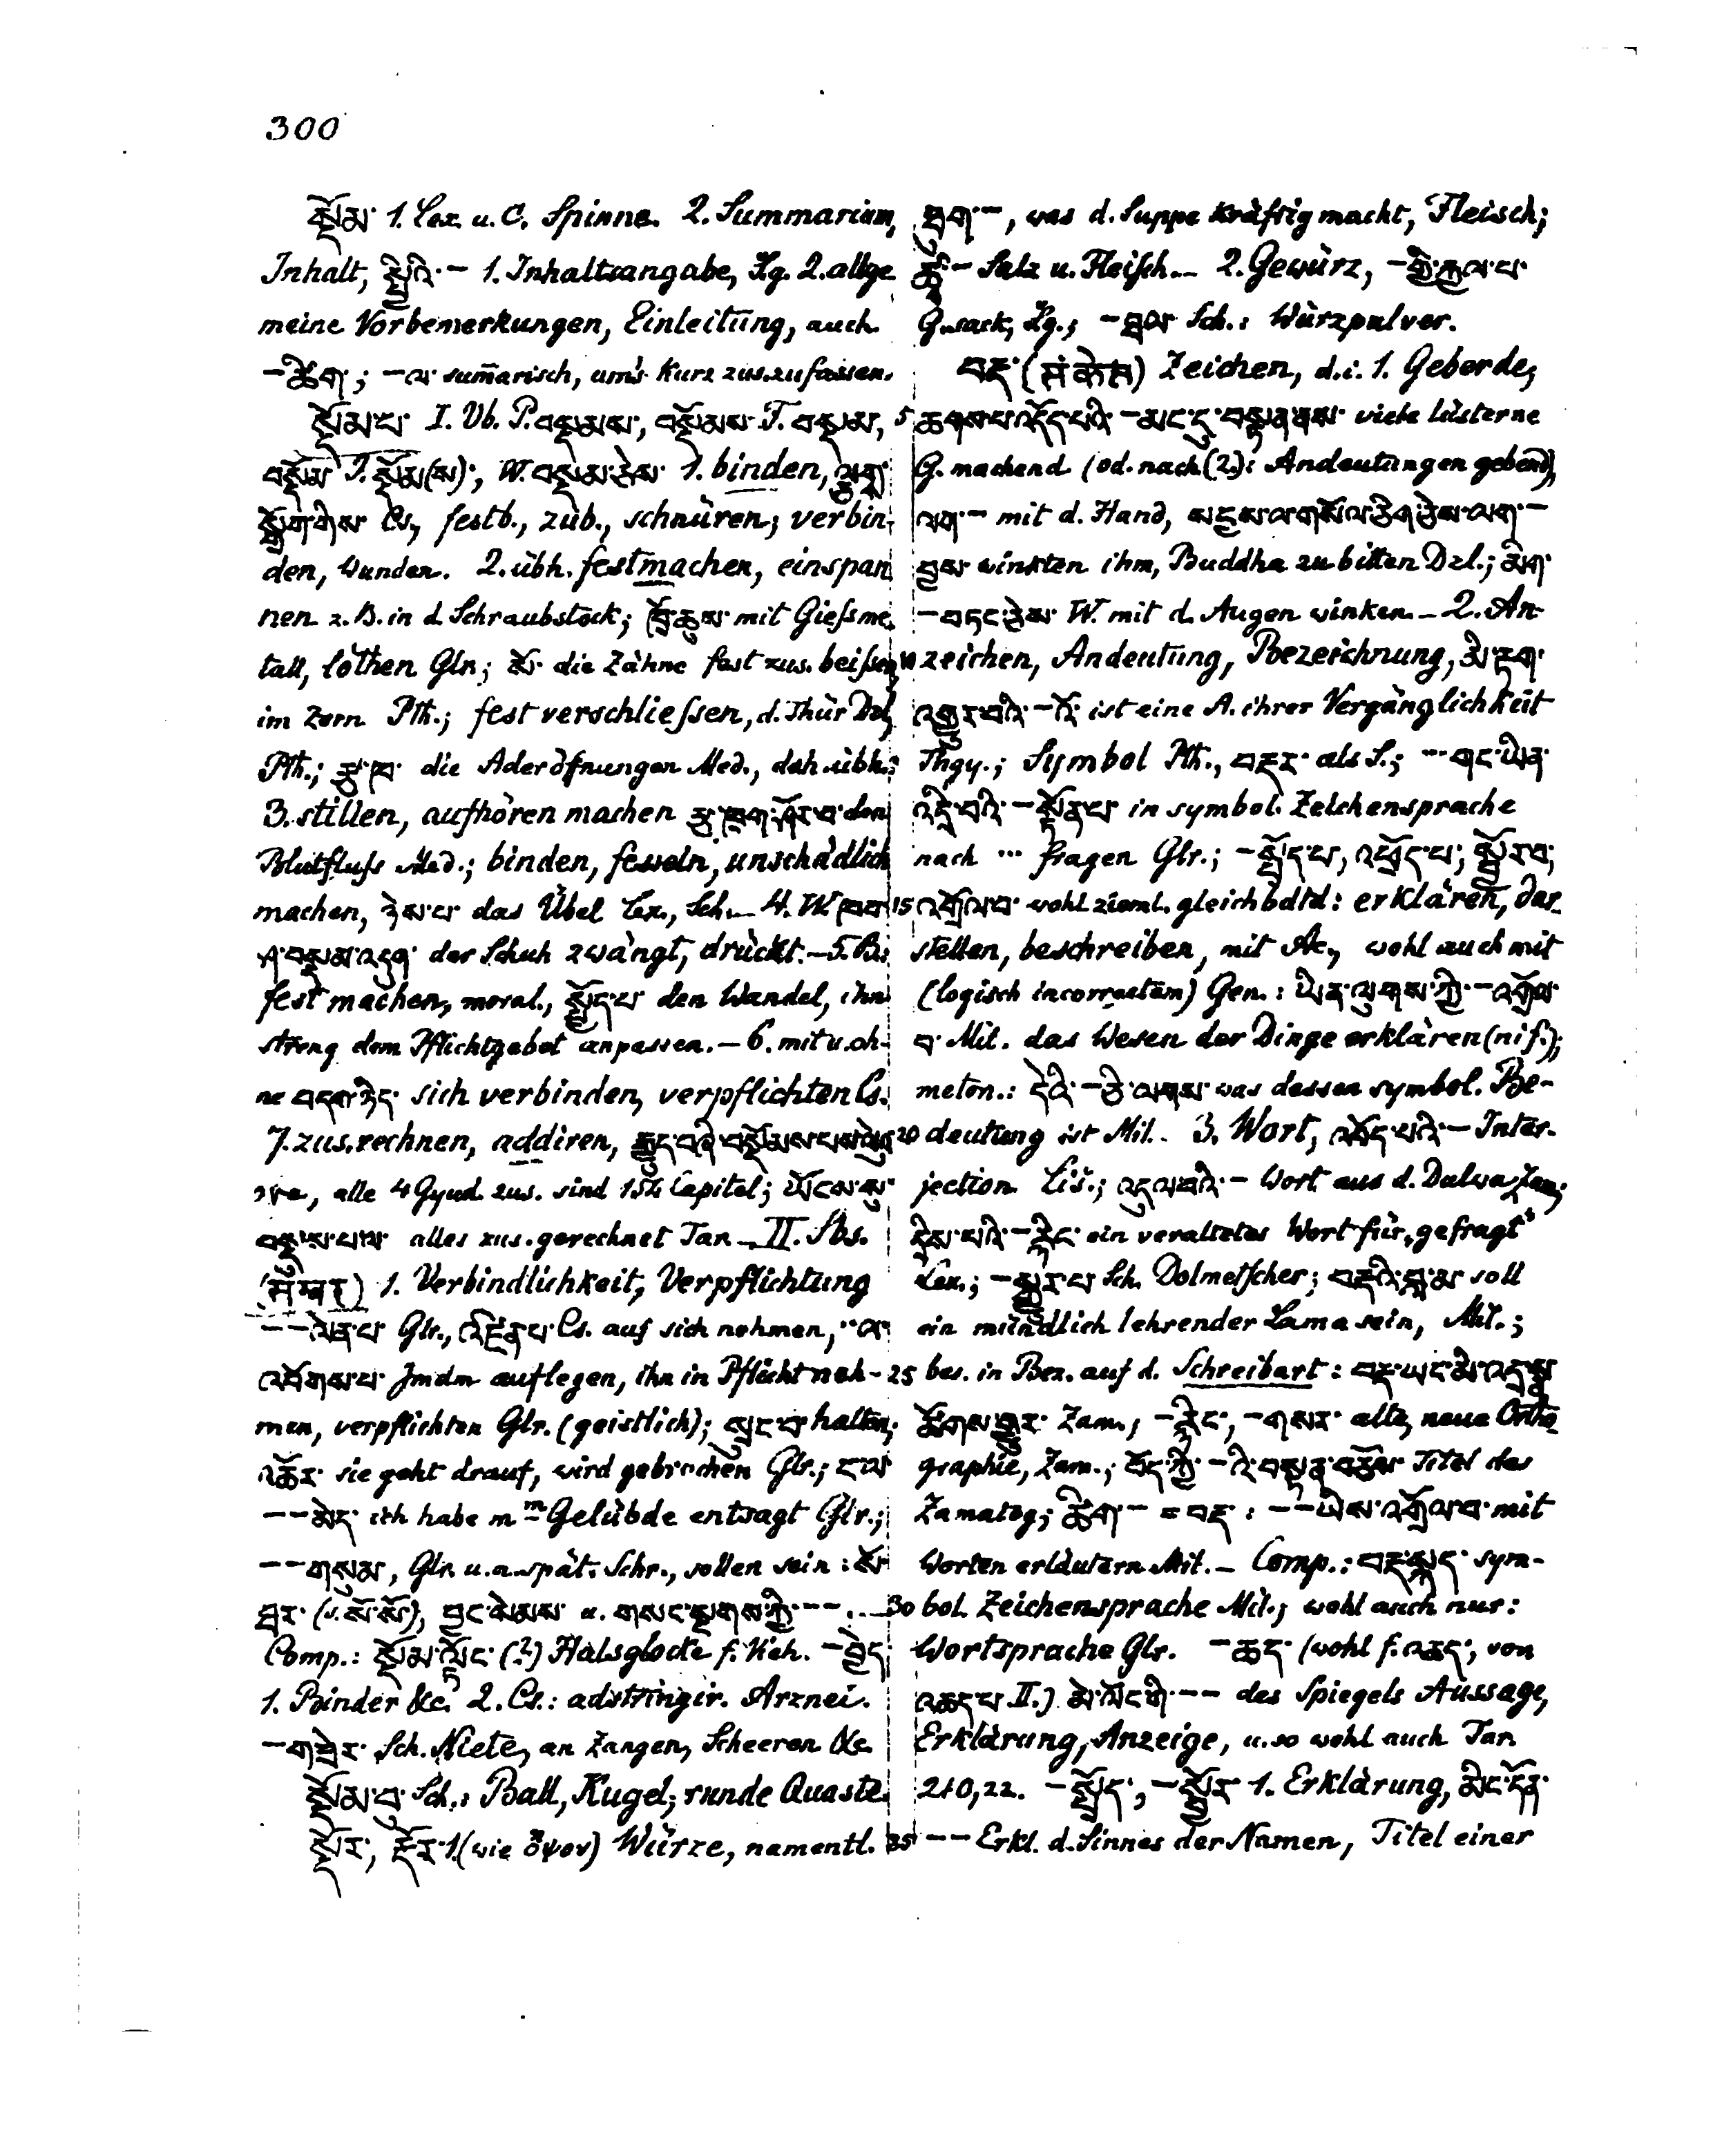 300
སྡོམ་ 1. Lex. u. C. Spinne. 2. Summarium,
Inhalt, སྤྱིའི་ – 1. Inhaltsangabe, Lg. 2. allge
meine Vorbemerkungen, Einleitung, auch
– ཚིག་; – ལ་ sum̄arisch, um's kurz zus.zufassen.
སྡོམ་པ་ I. Vb. P. བསྡམས་, བསྡོམས་ F. བསྡམ,
བསྡོམ་ J. སྡོམ(ས)་, W. བསྡམ་ཅེས་ 1. binden,
སྒྲོག་གིས་ Cs., festb., zub., schnüren; verbin-
den, Wunden. 2. übh. festmachen, einspan
nen z. B. in d. Schraubstock; ཁྲོ་ཆུས་ mit Giessme
tall, löthen Glr.; སོ་ die Zähne fest zus. beissen
im Zorn Pth.; fest verschliessen, d. Thür Dzl,
Pth.; རྩ་ཁ་ die Aderöfnungen Med., dah. übh.:
3. stillen, aufhören machen den
Blutfluss Med.; binden, fesseln, unschädlich
machen, ཉེས་པ་ das Übel Lex., Sch. – 4. W.
བསྡམ་འདུག་ der Schuh zwängt, drückt. – 5. B.:
fest machen, moral., སྤྱོད་པ་ den Wandel, ihn
streng dem Pflichtgebot anpassen. – 6. mit u. oh-
ne བདག་ཉིད་ sich verbinden, verpflichten Cs.
7. zus.rechnen, addiren, རྒྱུད་བཞི་བསྡོམས་པས་ལེའུ་
alle 4 Gyud zus. sind 154 Capitel; ཡོངས་སུ་
བསྡམས་པས་ alles zus. gerechnet Tan – II. Sbs.
(संवर) 1. Verbindlichkeit, Verpflichtung
– – ལེན་པ་ Glr., འཛིན་པ་ Cs. auf sich nehmen, ¨ལ་
འབོགས་པ་ Jmdm auflegen, ihn in Pflicht neh-
men, verpflichten Glr. (geistlich); སྲུང་བ་ halten,
འཆོར་ sie geht drauf, wird gebrochen Glr.; ངལ
– – མེད་ ich habe mm Gelübde entsagt Glr.;
– – གསུམ་, Glr. u. a. spät. Schr., sollen sein: སོ་
ཐར་ (s. སོ་སོ་), བྱང་སེམས་ u. གསང་སྔགས་ཀྱི་ – – . –
Comp.: སྡོམ་ལྟོང་ (?) Halsglocke f. Küh. – བྱེད་
1. Binder &c. 2. Cs.: adstringir. Arznei.
– གཟེར་ Sch. Niete, an Zangen, Scheeren &c.
སྡོམ་བུ་ Sch.: Ball, Kugel; runde Quaste.
སྡོར་, རྡོར་ 1. (wie ὄψον) Würze, namentl.
ཐུག་ –, was d. Suppe kräftig macht, Fleisch;
ཚྭ་ – Salz u. Fleisch. – 2. Gewürz, – གྱི་རྐྱལ་པ་
G.sack, Lg.; – Sch.: Würzpulver.
བརྡ་ (संकेत) Zeichen, d. i. 1. Geberde,
5 ཆགས་པ་འདོད་པའི་ – མང་དུ་བསྟན་ནས་ viele lüsterne
G. machend (od. nach (2.): Andeutungen gebend),
ལག་ – mit d. Hand, སངས་ལ་གསོལ་ཅིག་ཅེས་ལག་ –
བྱས་ winkten ihm, Buddha zu bitten Dzl.; མིག་
– བཏང་ཅེས་ W. mit d. Augen winken. – 2. An-
10 zeichen, Andeutung, Bezeichnung, མི་རྟག་
འགྱུར་བའི་ – འོ་ ist eine A. ihrer Vergänglichkeit
Thgy.; Symbol Pth., བརྡར་ als S.; ¨ གང་ཡིན་
འདྲི་བའི་ – སྟོན་པ་ in symbol. Zeichensprache
nach ... fragen Glr.; – སྤྲོད་པ་, འཕྲོད་པ་, སྦྱོར་བ,
15 འགྲོལ་བ་ wohl zieml. gleichbdtd: erklären, dar-
stellen, beschreiben, mit Ac., wohl auch mit
(logisch incorrectem) Gen.: ཡིན་ལུགས་ཀྱི་ – འགྲོལ་
བ་ Mil. das Wesen der Dinge erklären (nif.);
meton.: དེའི་ – ཅི་ལགས་ was dessen symbol. Be-
20 deutung ist Mil. 3. Wort, འབོད་པའི་ – Inter-
jection Liš.; འདུལ་བའི་ – Wort aus d. Dulva Zam.;
དྲིས་པའི་ – རྙིང་ ein veraltetes Wort für „gefragt"
Lex.; – སྒྱུར་པ་ Sch. Dolmetscher; བརྡའི་བླ་མ་ soll
ein mündlich lehrender Lama sein, Mil.;
25 bes. in Bez. auf d. Schreibart: བརྡ་ཡང་མི་འདྲ་སྣ་
ཚོགས་གྱུར་ Zam., – རྙིང་, – གསར་ alte, neue Ortho
graphie, Zam.; བོད་ཀྱི་ – འི་བསྟན་བཅོས་ Titel des
Zamatog; ཚིག་ – = བརྡ་ : – – ཡིས་འགྲོལ་བ་ mit
Worten erläutern Mil. – Comp.: བརྡ་སྐད་ sym-
30 bol. Zeichensprache Mil.; wohl auch nur:
Wortsprache Glr. – ཆད་ (wohl f. འཆད་, von
འཆད་པ་ II.) མེ་ལོང་གི་ – – des Spiegels Aussage,
Erklärung, Anzeige, u. so wohl auch Tan
210,22. – སྤྲོད་, – སྦྱོར་ 1. Erklärung, མིང་དོན་
35 – – Erkl. d. Sinnes der Namen, Titel einer